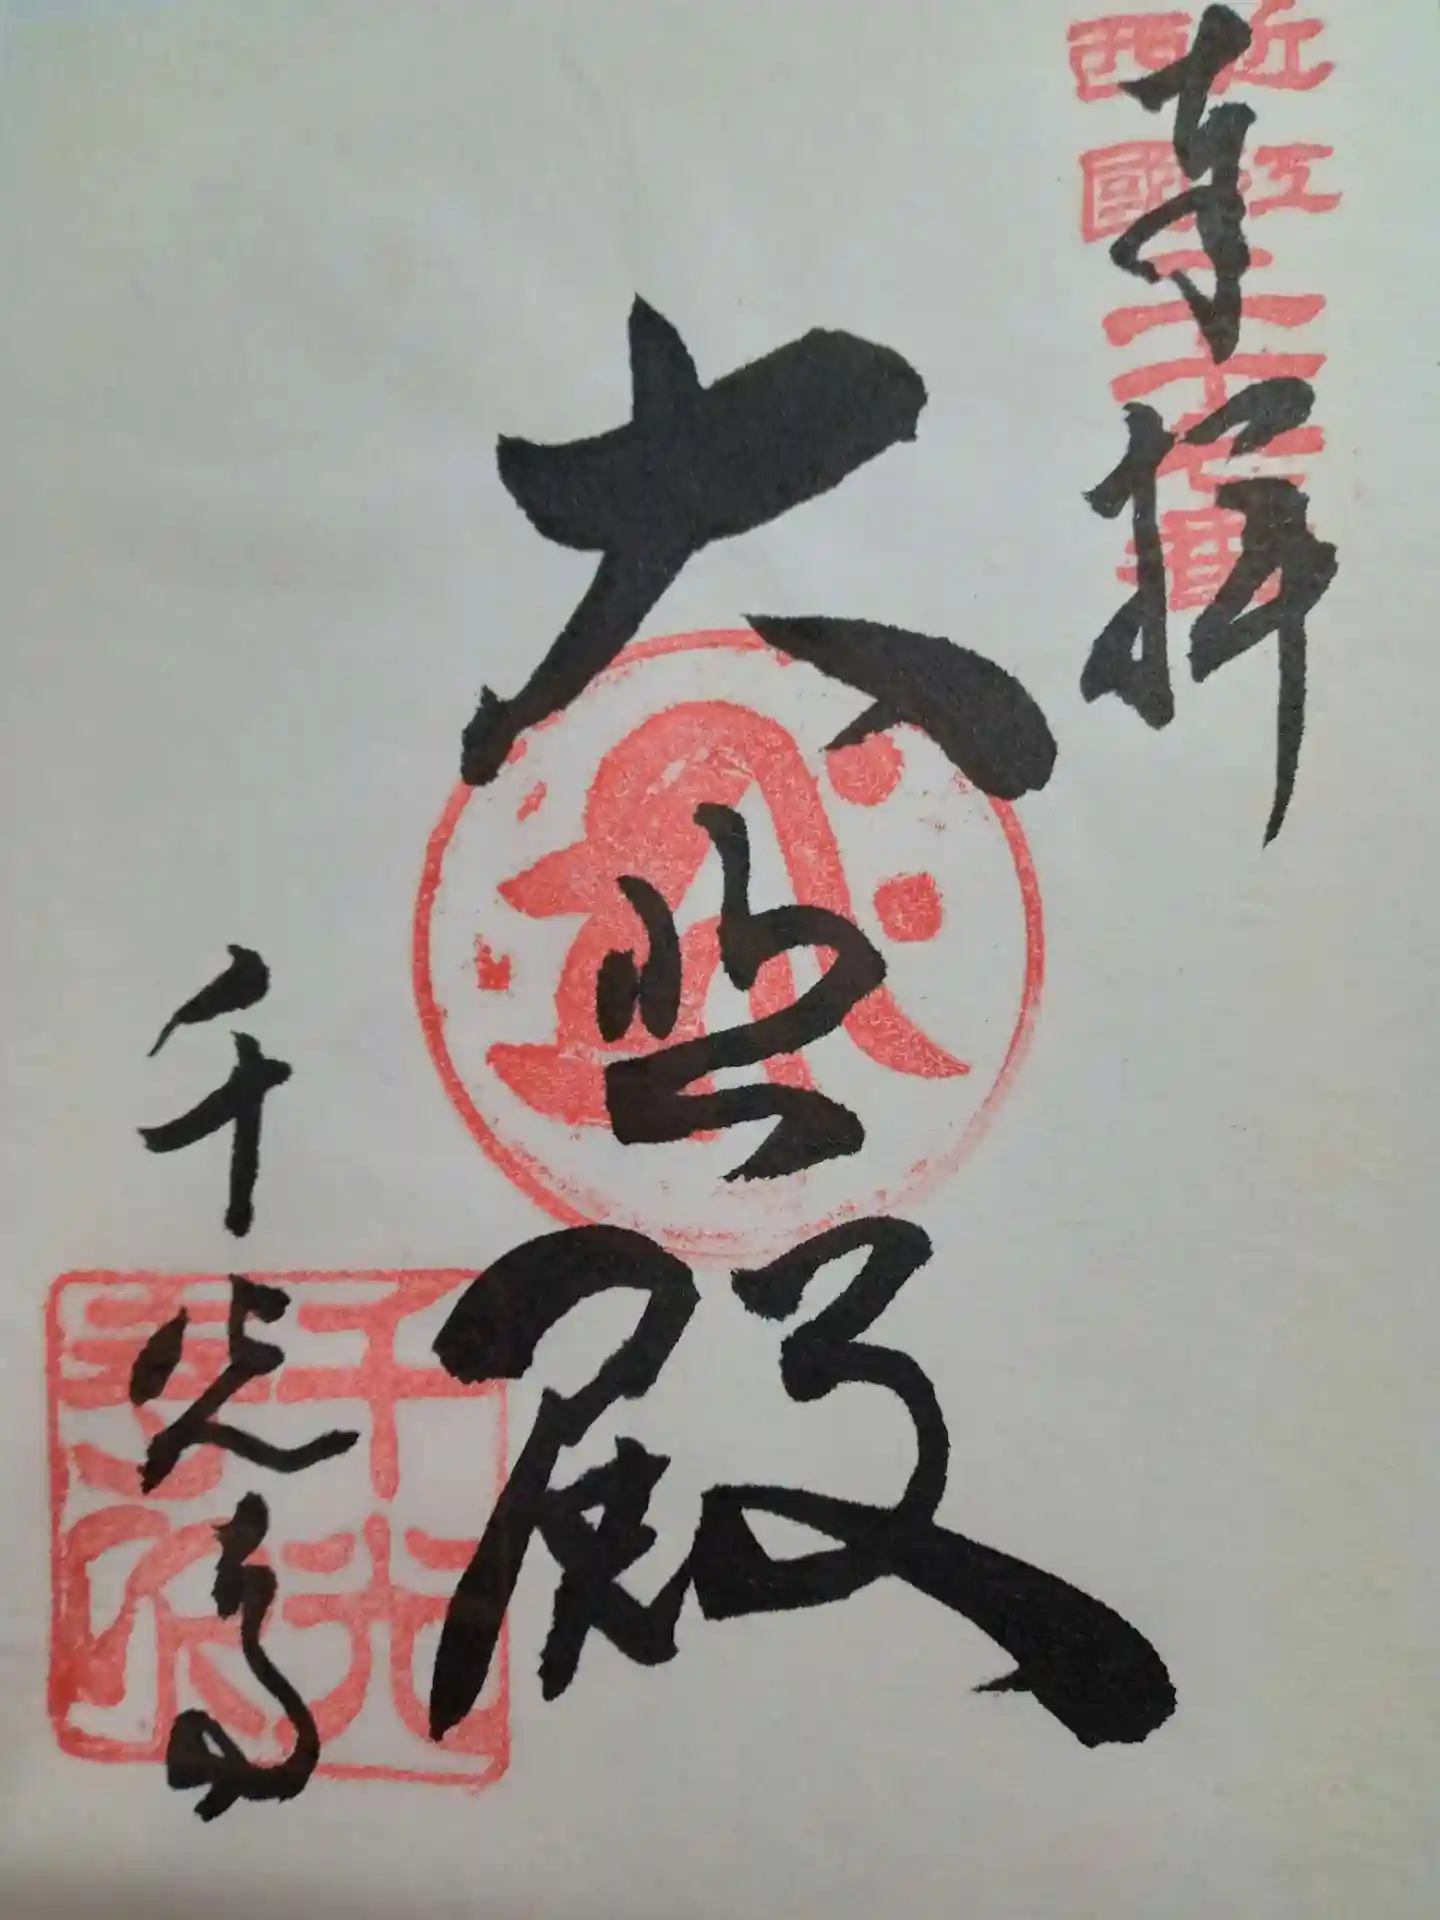 奉拝
近江
西國
二十七番
大悲殿
千光寺
千光寺印